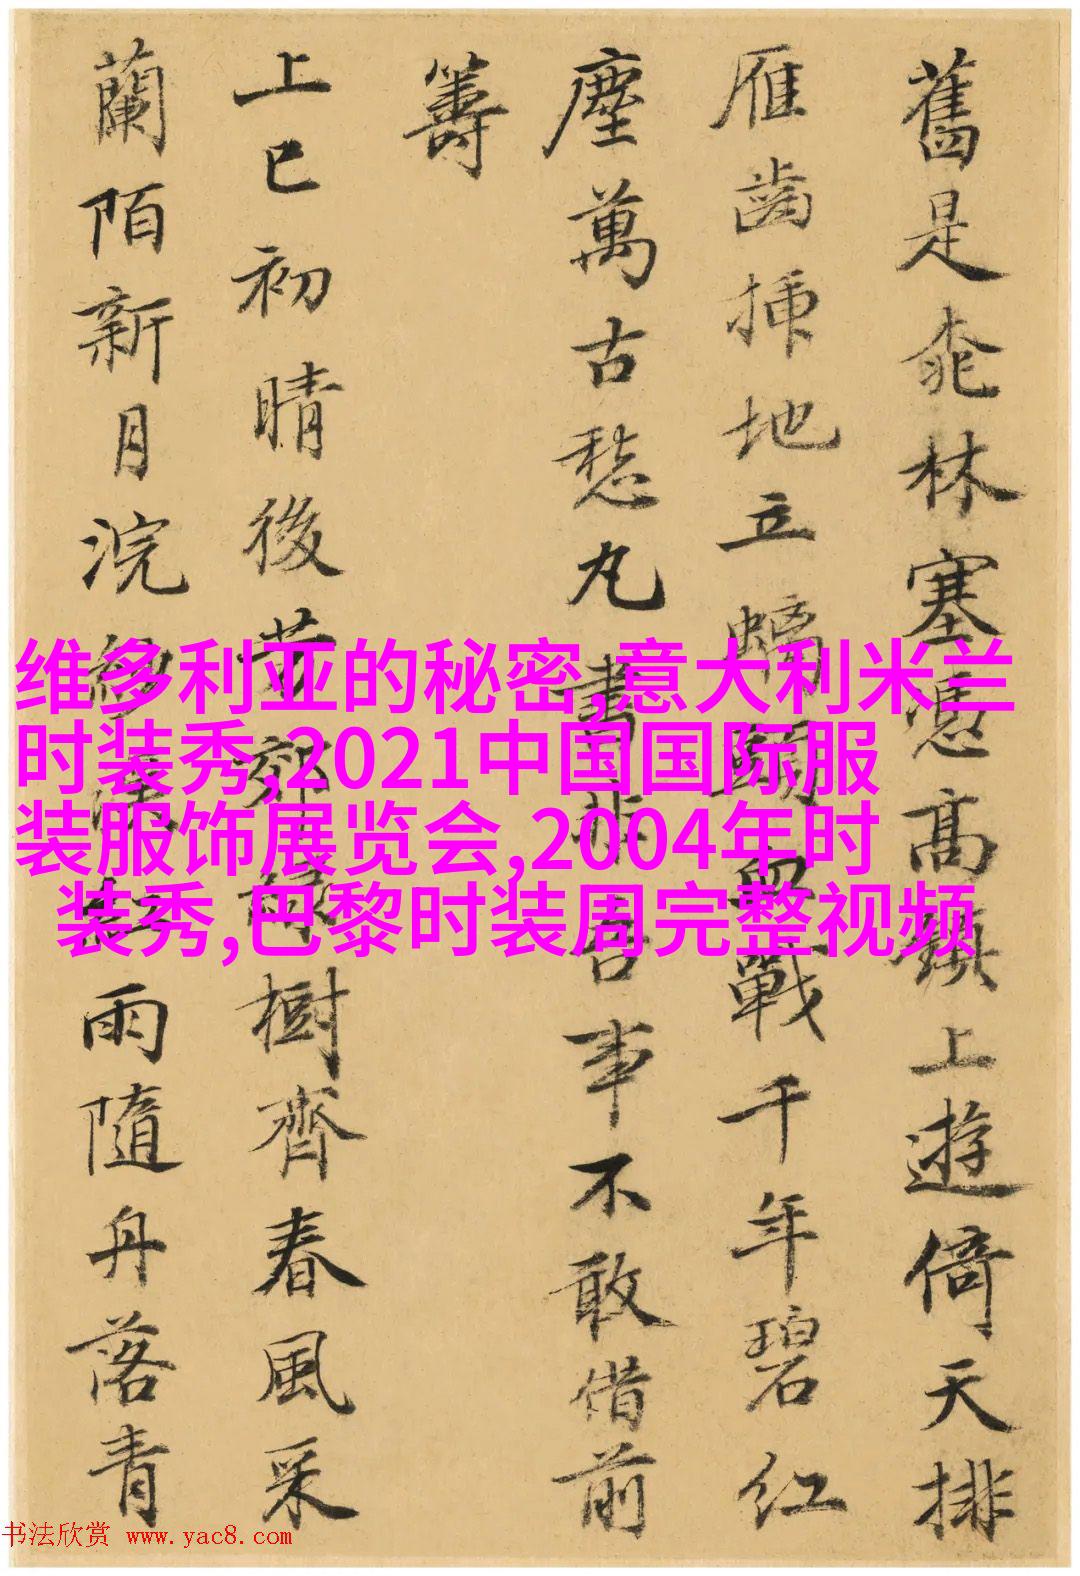 舊是
林塞憑高
上遊倚天排
雁齒插地立螭
戰千年碧紅
塵萬古愁丸書非吾事不敢借前
籌
上巳初晴後芳郊
樹齊春風采
蘭陌新月浣
雨隨丹落青
维多利亚的秘密,意大利米兰
时装秀,2021中国国际服
装服饰展览会,2004年时
装秀,巴黎时装周完整视频
书法欣赏 www.yac8.com